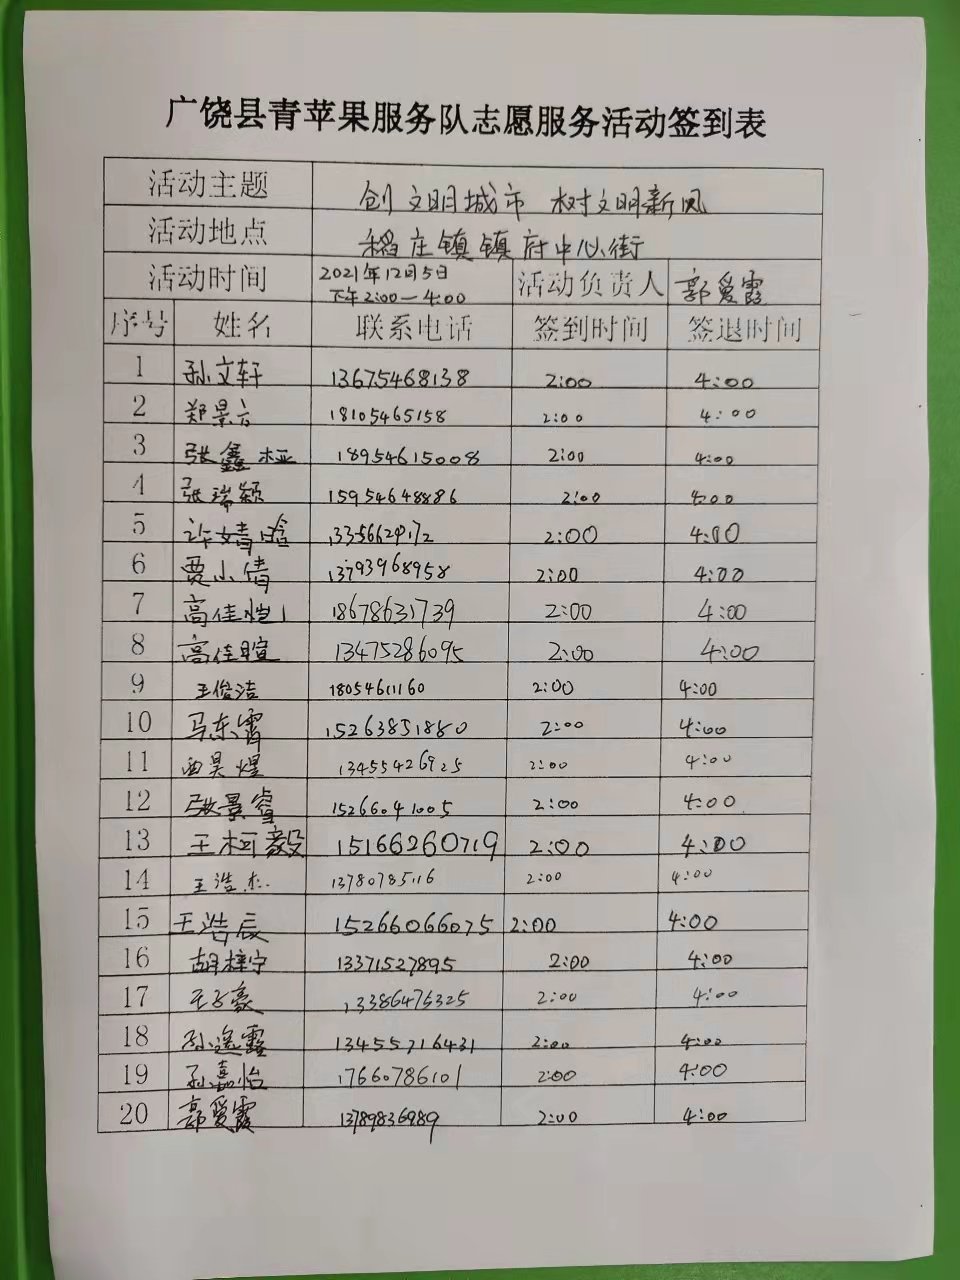 广饶县青苹果服务队志愿服务活动签到表
活动主题 创文明城市 树文明新风
活动地点 稻庄镇镇府中心街
活动时间 2021年12月5日 下午2:00—4:00 活动负责人 郭爱霞
序号 姓名 联系电话 签到时间 签退时间
1 孙文轩 13675468138 2:00 4:00
2 郑景 18105465158 2:00 4:00
3 张鑫桠 18954615008 2:00 4:00
4 张瑞颖 15954648886 2:00 4:00
5 许婧晗 2:00 4:00
6 贾小倩 13793968958 2:00 4:00
7 高佳 18678631739 2:00 4:00
8 高佳暄 13475286095 2:00 4:00
9 王俊洁 18054611160 2:00 4:00
10 马东霄 15263851880 2:00 4:00
11 昊煜 13455426925 2:00 4:00
12 张景睿 15266041005 2:00 4:00
13 王柯毅 15166260719 2:00 4:00
14 王浩杰 13780785116 2:00 4:00
15 王浩辰 15266066075 2:00 4:00
16 胡梓宁 13371527895 2:00 4:00
17 王子豪 13386475325 2:00 4:00
18 孙遥鑫 13455716431 2:00 4:00
19 孙嘉怡 17660786101 2:00 4:00
20 郭爱霞 13789836989 2:00 4:00